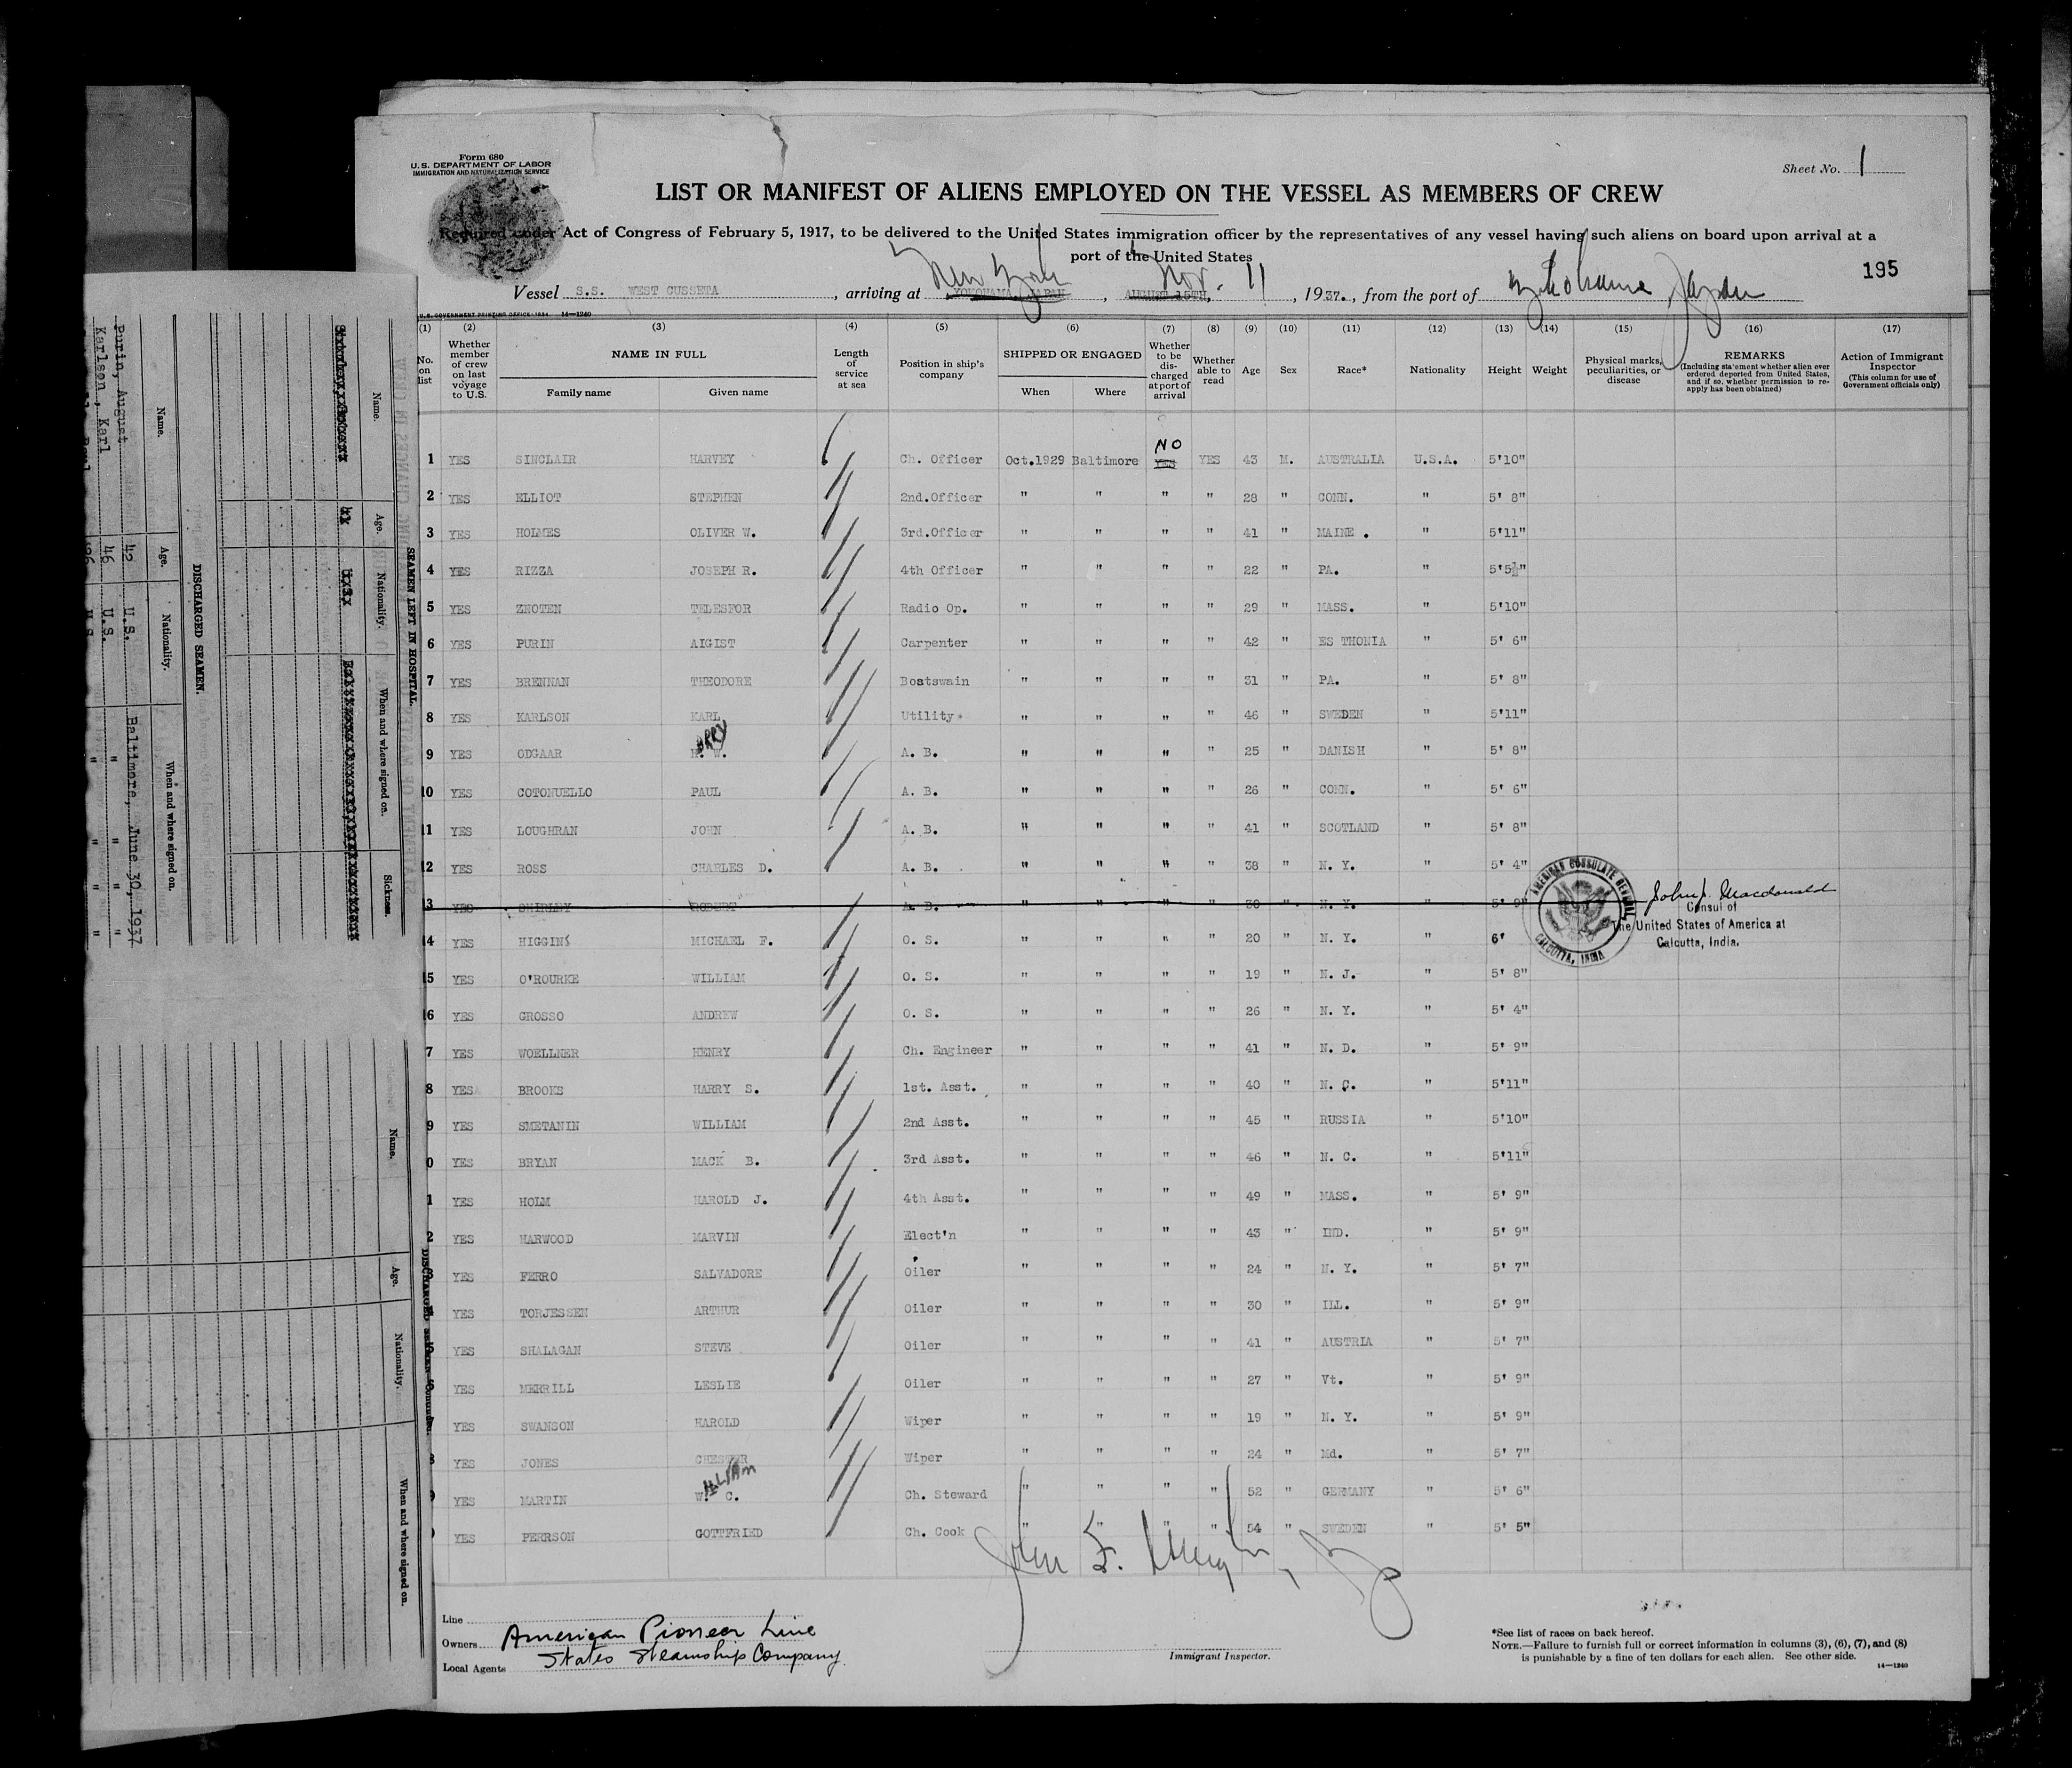 Form 680
U. S. DEPARTMENT OF LABOR
IMMIGRATION AND NATURALIZATION SERVICE
Sheet No. 1
LIST OR MANIFEST OF ALIENS EMPLOYED ON THE VESSEL AS MEMBERS OF CREW
Required under Act of Congress of February 5, 1917, to be delivered to the United States immigration officer by the representatives of any vessel having such aliens on board upon arrival at a
port of the United States
195
New York Nov. 11
Vessel S.S. WEST CUSSETA, arriving at YOKOHAMA, JAPAN, AUGUST 15TH, 1937., from the port of Yokohama, Japan
U.S. GOVERNMENT PRINTING OFFICE: 1934 14—1240
(1) (2) (3) (4) (5) (6) (7) (8) (9) (10) (11) (12) (13) (14) (15) (16) (17)
No. on list
Whether member of crew on last voyage to U.S.
NAME IN FULL
Family name
Given name
Length of service at sea
Position in ship's company
SHIPPED OR ENGAGED
When
Where
Whether to be discharged at port of arrival
Whether able to read
Age
Sex
Race*
Nationality
Height
Weight
Physical marks, peculiarities, or disease
REMARKS
(Including statement whether alien ever ordered deported from United States, and if so, whether permission to reapply has been obtained)
Action of Immigrant Inspector
(This column for use of Government officials only)
NO
1 YES SINCLAIR HARVEY Ch. Officer Oct.1929 Baltimore YES YES 43 M. AUSTRALIA U.S.A. 5'10"
2 YES ELLIOT STEPHEN 2nd.Officer " " " " 28 " CONN. " 5' 8"
3 YES HOLMES OLIVER W. 3rd.Officer " " " " 41 " MAINE . " 5'11"
4 YES RIZZA JOSEPH R. 4th Officer " " " " 22 " PA. " 5'5½"
5 YES ZNOTEN TELESFOR Radio Op. " " " " 29 " MASS. " 5'10"
6 YES PURIN AIGIST Carpenter " " " " 42 " ES THONIA " 5' 6"
7 YES BRENNAN THEODORE Boatswain " " " " 31 " PA. " 5' 8"
8 YES KARLSON KARL Utility " " " " 46 " SWEDEN " 5'11"
9 YES ODGAAR H. W. A. B. " " " " 25 " DANISH " 5' 8"
10 YES COTONUELLO PAUL A. B. " " " " 26 " CONN. " 5' 6"
11 YES LOUGHRAN JOHN A. B. " " " " 41 " SCOTLAND " 5' 8"
12 YES ROSS CHARLES D. A. B. " " " " 38 " N. Y. " 5' 4"
3 YES SHIRLEY ROBERT A. B. " " " " 30 " N. Y. " 5' 9"
14 YES HIGGINS MICHAEL F. O. S. " " " " 20 " N. Y. " 6'
15 YES O'ROURKE WILLIAM O. S. " " " " 19 " N. J. " 5' 8"
16 YES GROSSO ANDREW O. S. " " " " 26 " N. Y. " 5' 4"
7 YES WOELLNER HENRY Ch. Engineer " " " " 41 " N. D. " 5' 9"
8 YES BROOKS HARRY S. 1st. Asst. " " " " 40 " N. C. " 5'11"
9 YES SMETANIN WILLIAM 2nd Asst. " " " " 45 " RUSSIA " 5'10"
0 YES BRYAN MACK B. 3rd Asst. " " " " 46 " N. C. " 5'11"
1 YES HOLM HAROLD J. 4th Asst. " " " " 49 " MASS. " 5' 9"
2 YES HARWOOD MARVIN Elect'n " " " " 43 " IND. " 5' 9"
YES FERRO SALVADORE Oiler " " " " 24 " N. Y. " 5' 7"
YES TORJESSEN ARTHUR Oiler " " " " 30 " ILL. " 5' 9"
YES SHALAGAN STEVE Oiler " " " " 41 " AUSTRIA " 5' 7"
YES MERRILL LESLIE Oiler " " " " 27 " Vt. " 5' 9"
YES SWANSON HAROLD Wiper " " " " 19 " N. Y. " 5' 9"
YES JONES CHESTER Wiper " " " " 24 " Md. " 5' 7"
YES MARTIN W. C. Ch. Steward " " " " 52 " GERMANY " 5' 6"
YES PERRSON GOTTFRIED Ch. Cook " " " " 54 " SWEDEN " 5' 5"
AMERICAN CONSULATE GENERAL
CALCUTTA, INDIA
John J. Macdonald
Consul of
The United States of America at
Calcutta, India.
Line
Owners American Pioneer Line
Local Agents States Steamship Company
Immigrant Inspector.
*See list of races on back hereof.
NOTE.—Failure to furnish full or correct information in columns (3), (6), (7), and (8)
is punishable by a fine of ten dollars for each alien. See other side.
14—1240
SEAMEN LEFT IN HOSPITAL.
Name.
Age.
Nationality.
When and where signed on.
Sickness.
DISCHARGED SEAMEN.
Name.
Age.
Nationality.
When and where signed on.
Purin, August 42 U.S. Baltimore, June 30, 1937
Karlson, Karl 46 U.S. " " "
Name.
Age.
Nationality.
When and where signed on.